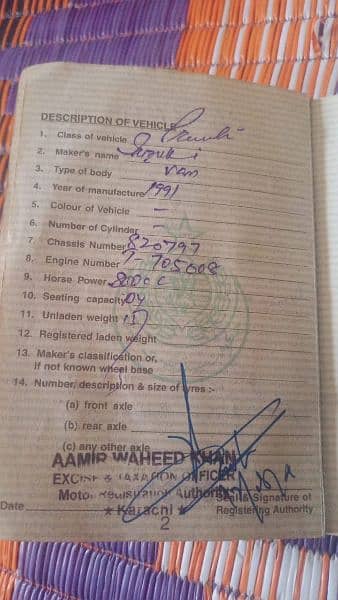 DESCRIPTION OF VEHICLE
1. Class of vehicle
2. Maker's name Suzuki
3. Type of body van
4. Year of manufacture 1991
5. Colour of Vehicle –
6. Number of Cylinder –
7. Chassis Number 820797
8. Engine Number 7-705608
9. Horse Power 800cc
10. Seating capacity 04
11. Unladen weight
12. Registered laden weight
13. Maker's classification or,
if not known wheel base
14. Number, description & size of tyres :-
(a) front axle
(b) rear axle
(c) any other axle
AAMIR WAHEED KHAN
EXCISE & TAXATION OFFICER
Motor Registration Authority
Seal & Signature of
★ Karachi ★
Registering Authority
Date
2